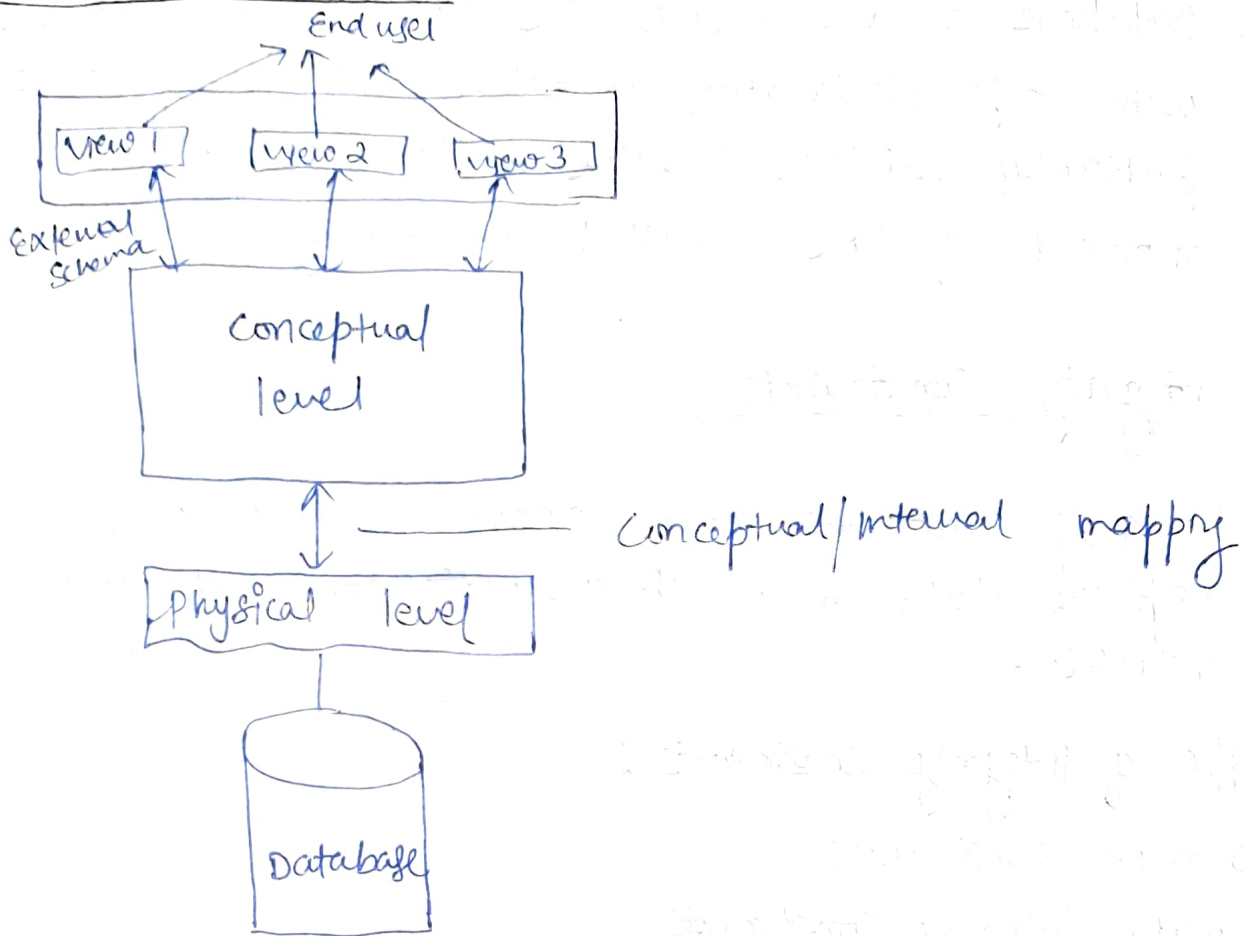 End user
View 1 View 2 View 3
External
Schema
Conceptual
level
Conceptual/internal mapping
Physical level
Database